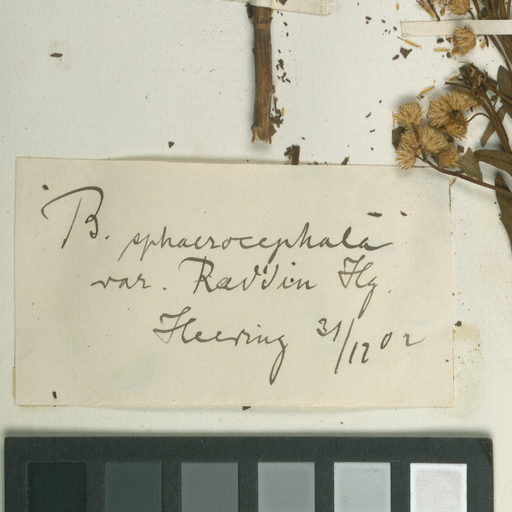 "B. sphaerocephala"
var. Raddin Hg.
Heering 31/12 02